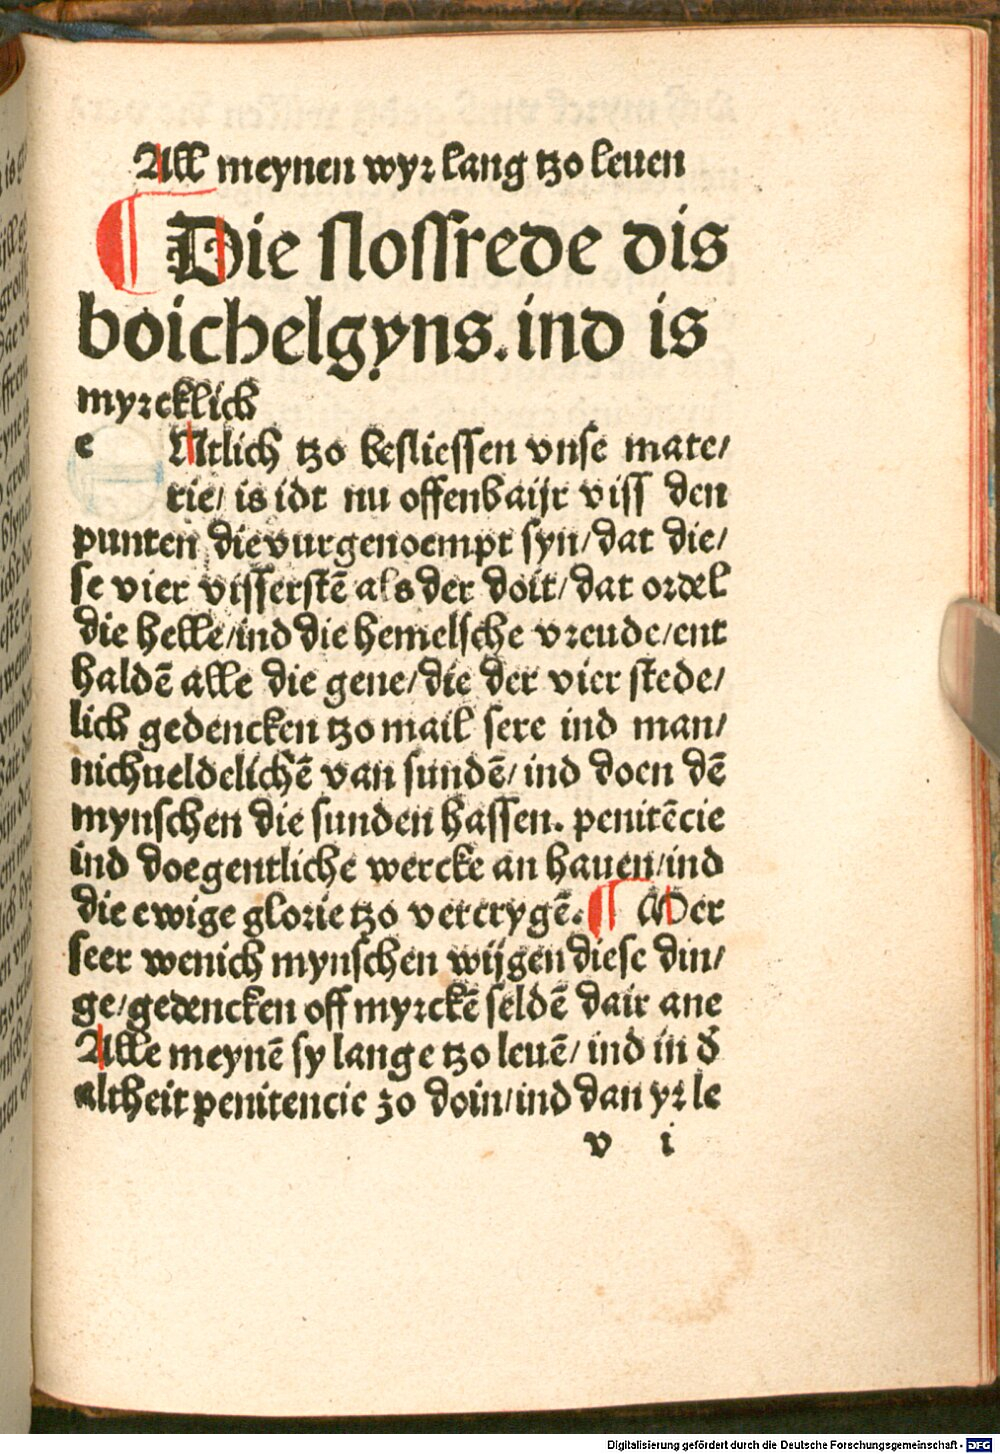 All meynen wyr lang tzo leuen
¶ Die slossrede dis
boichelgyns. ind is
myrcklich
e Ntlich tzo besliessen vnse mate/
rie/ is idt nu offenbaijr viss den
punten die vurgenoempt syn/ dat die/
se vier visserstē als der doit/ dat ordel
die helle/ ind die hemelsche vreude/ ent
haldē alle die gene/ die der vier stede/
lich gedencken tzo mail sere ind man/
nichueldelichē van sundē/ ind doen dē
mynschen die sunden hassen. penitēcie
ind doegentliche wercke an hauen/ ind
die ewige glorie tzo vercrygē. ¶ Mer
seer wenich mynschen wijgen diese din/
ge/ gedencken off myrckē seldē dair ane
Alle meynē sy lange tzo leuē/ ind in d̄
altheit penitencie zo doin/ ind dan yr le
v i
Digitalisierung gefördert durch die Deutsche Forschungsgemeinschaft - DFG